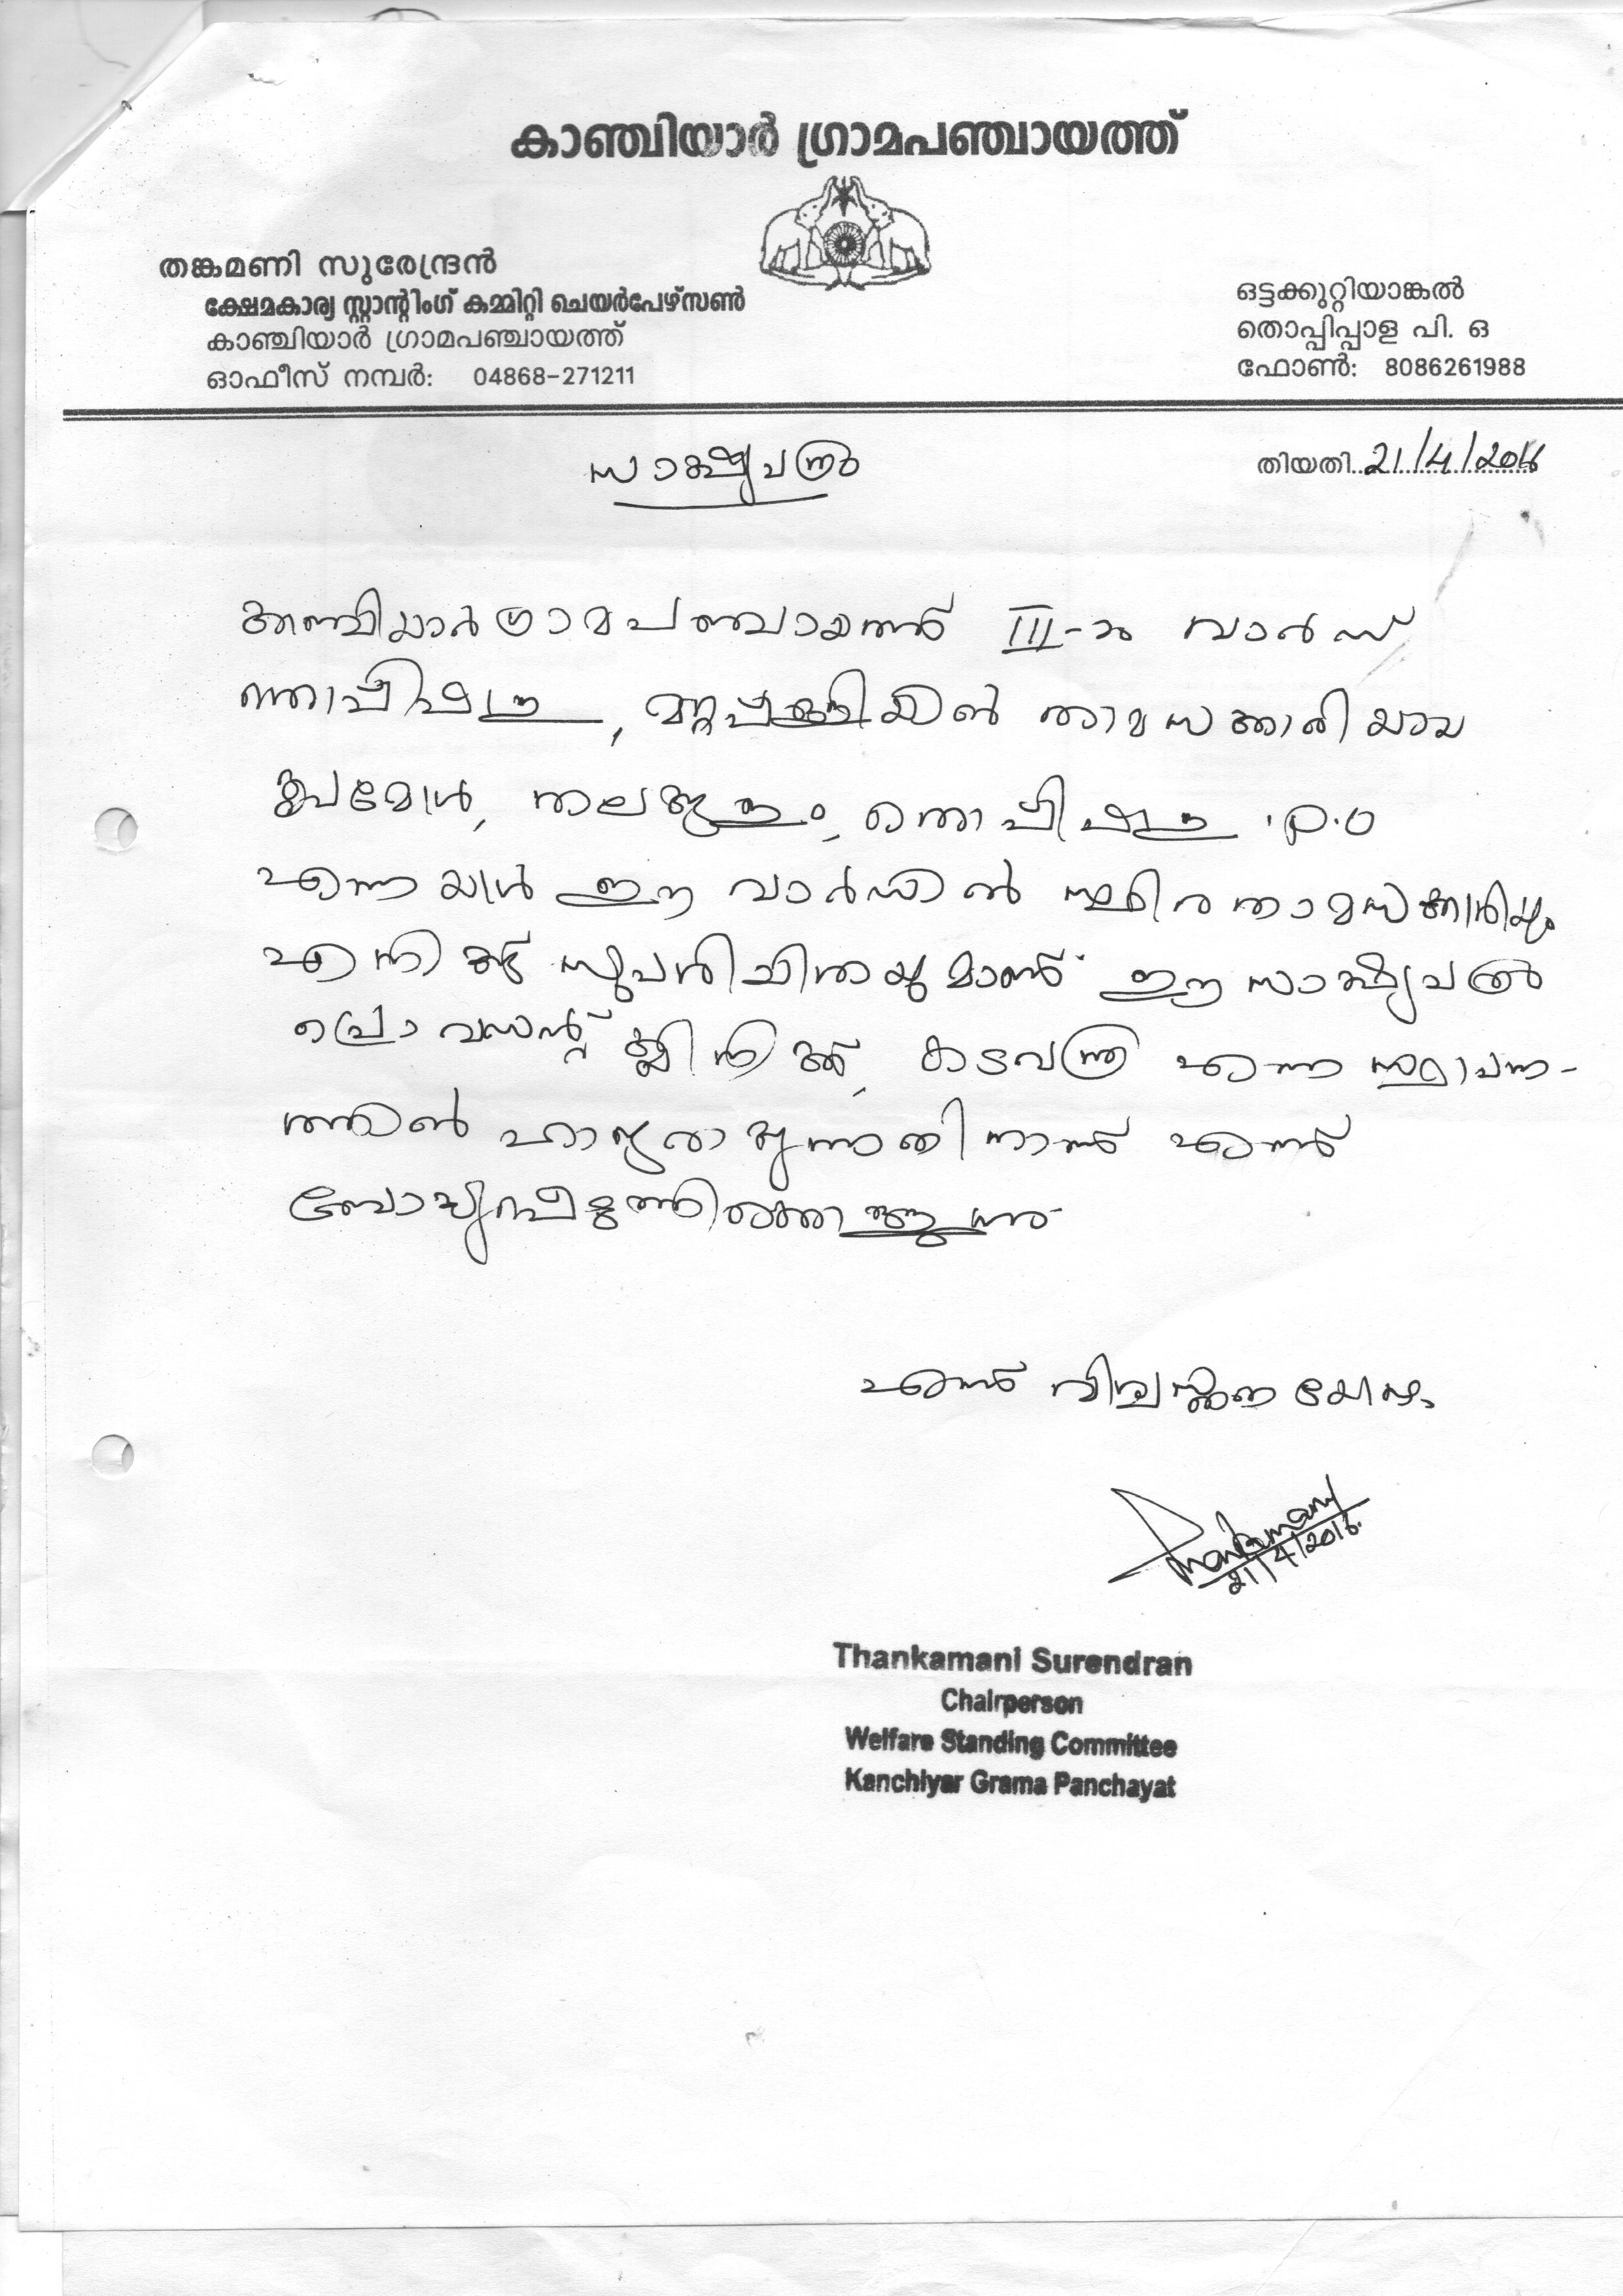 കാഞ്ചിയാർ ഗ്രാമപഞ്ചായത്ത്
തങ്കമണി സുരേന്ദ്രൻ
ക്ഷേമകാര്യ സ്റ്റാന്റിംഗ് കമ്മിറ്റി ചെയർപേഴ്സൺ
കാഞ്ചിയാർ ഗ്രാമപഞ്ചായത്ത്
ഓഫീസ് നമ്പർ: 04868-271211
ഒട്ടക്കുറ്റിയാങ്കൽ
തൊപ്പിപ്പാള പി. ഒ
ഫോൺ: 8086261988
സാക്ഷ്യപത്രം
തിയതി 21/4/2016
കാഞ്ചിയാർ ഗ്രാമപഞ്ചായത്ത് III-ാം വാർഡ്
താമസക്കാരിയായ
തൊപ്പിപ്പാള .P.O
എന്നയാൾ ഈ വാർഡിൽ സ്ഥിരതാമസക്കാരിയും
എനിക്ക് സുപരിചിതയുമാണ് ഈ സാക്ഷ്യപത്രം
ക്ലിനിക്ക്, കടവന്ത്ര എന്ന സ്ഥാപന-
ത്തിൽ ഹാജരാക്കുന്നതിനാണ് എന്ന്
ബോധ്യപ്പെടുത്തി
എന്ന് വിശ്വസ്തതയോടെ
Thankamany
21/4/2016.
Thankamani Surendran
Chairperson
Welfare Standing Committee
Kanchiyar Grama Panchayat